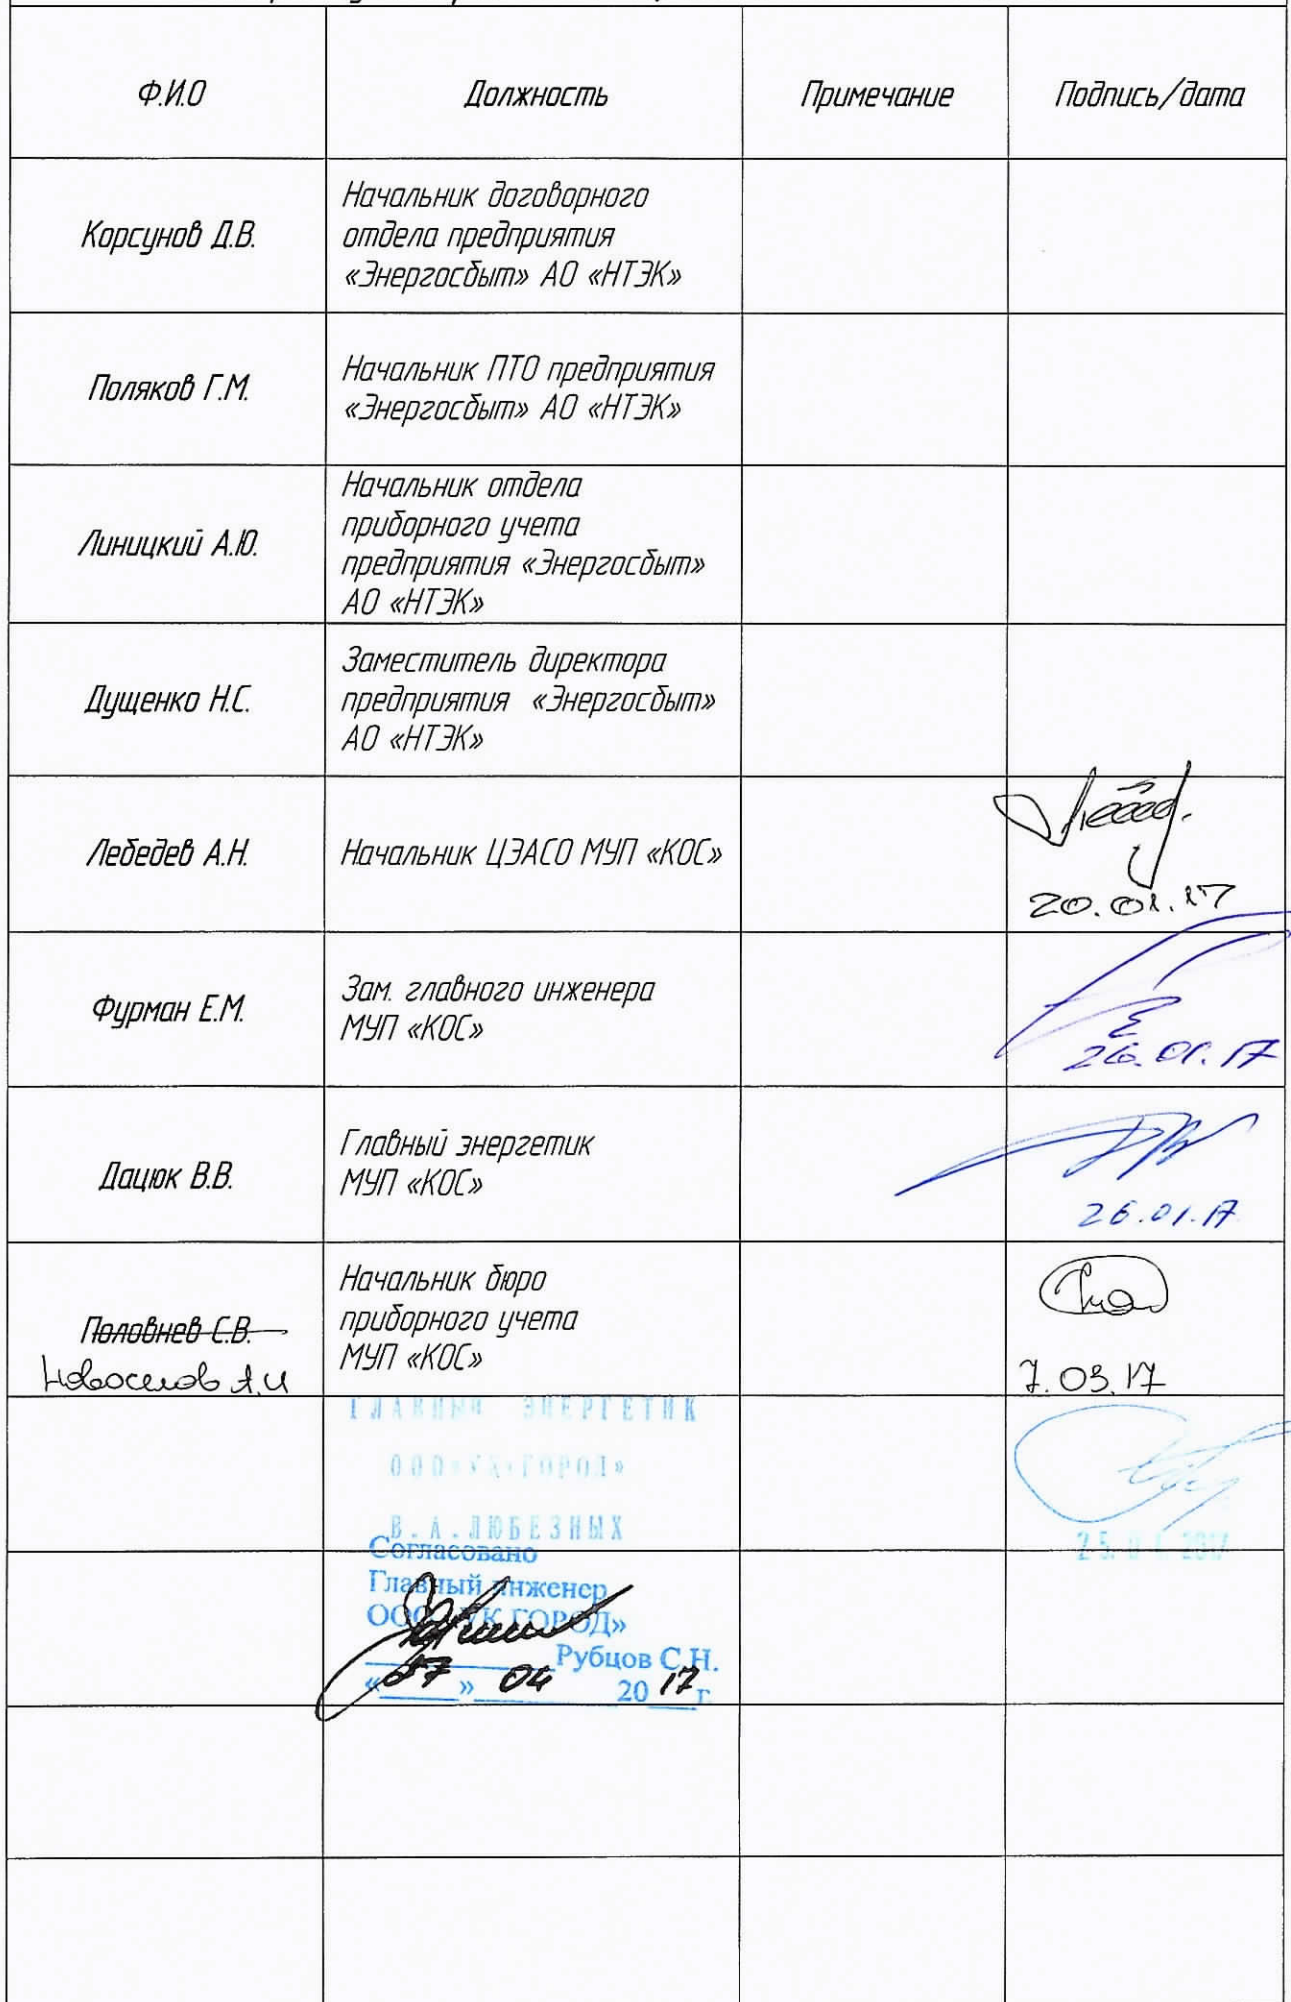 Ф.И.О
Должность
Примечание
Подпись/дата
Корсунов Д.В.
Начальник договорного
отдела предприятия
«Энергосбыт» АО «НТЭК»
Поляков Г.М.
Начальник ПТО предприятия
«Энергосбыт» АО «НТЭК»
Линицкий А.Ю.
Начальник отдела
приборного учета
предприятия «Энергосбыт»
АО «НТЭК»
Дущенко Н.С.
Заместитель директора
предприятия «Энергосбыт»
АО «НТЭК»
Лебедев А.Н.
Начальник ЦЭАСО МУП «КОС»
20.01.17
Фурман Е.М.
Зам. главного инженера
МУП «КОС»
26.01.17
Дацюк В.В.
Главный энергетик
МУП «КОС»
26.01.17
Половнев С.В.
Новоселов А.И
Начальник бюро
приборного учета
МУП «КОС»
7.03.17
ГЛАВНЫЙ ЭНЕРГЕТИК
ООО «УК «ГОРОД»
В.А.ЛЮБЕЗНЫХ
Согласовано
Главный инженер
ООО «УК ГОРОД»
Рубцов С.Н.
«07» 04 2017 г.